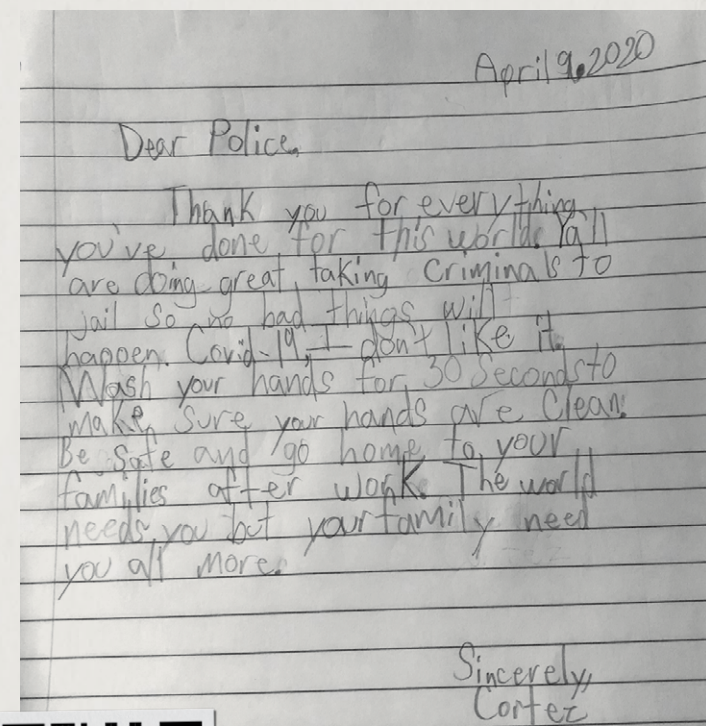 April 9, 2020
Dear Police,
Thank you for everything
you've done for this world. Ya'll
are doing great, taking Criminals to
jail so no bad things will
happen. Covid-19, I don't like it.
Wash your hands for 30 Seconds to
make sure your hands are Clean.
Be Safe and go home to your
families after work. The world
needs you but your family need
you all more.
Sincerely,
Cortez